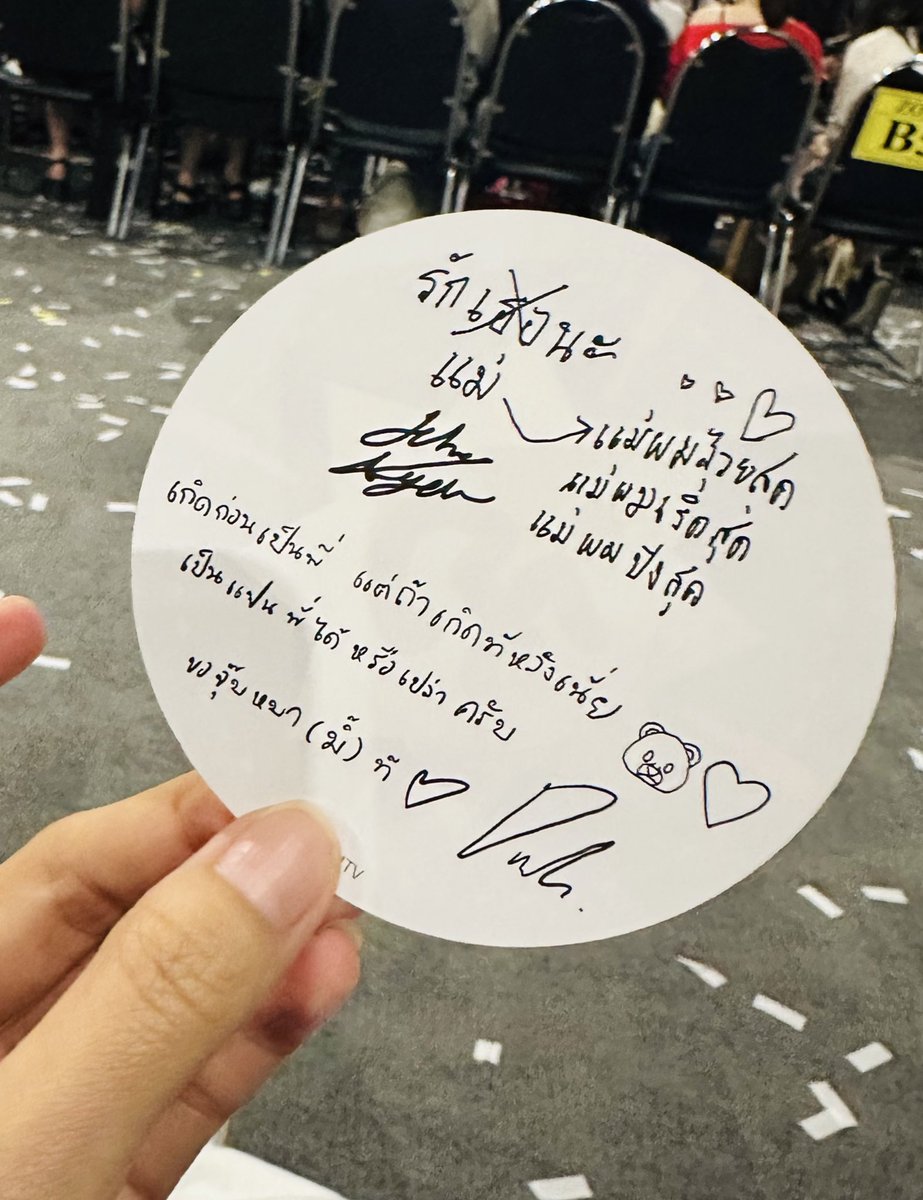 รักเฮียนะ
แม่
แม่ผมสวยสุด
แม่ผมเริ่ดสุด
แม่ผมปังสุด
เกิดก่อนเป็นพี่ แต่ถ้าเกิดทีหลังเนี่ย
เป็นแฟนพี่ได้หรือเปล่าครับ
ขอจุ๊บหมา (ม๊) ที
TV
B